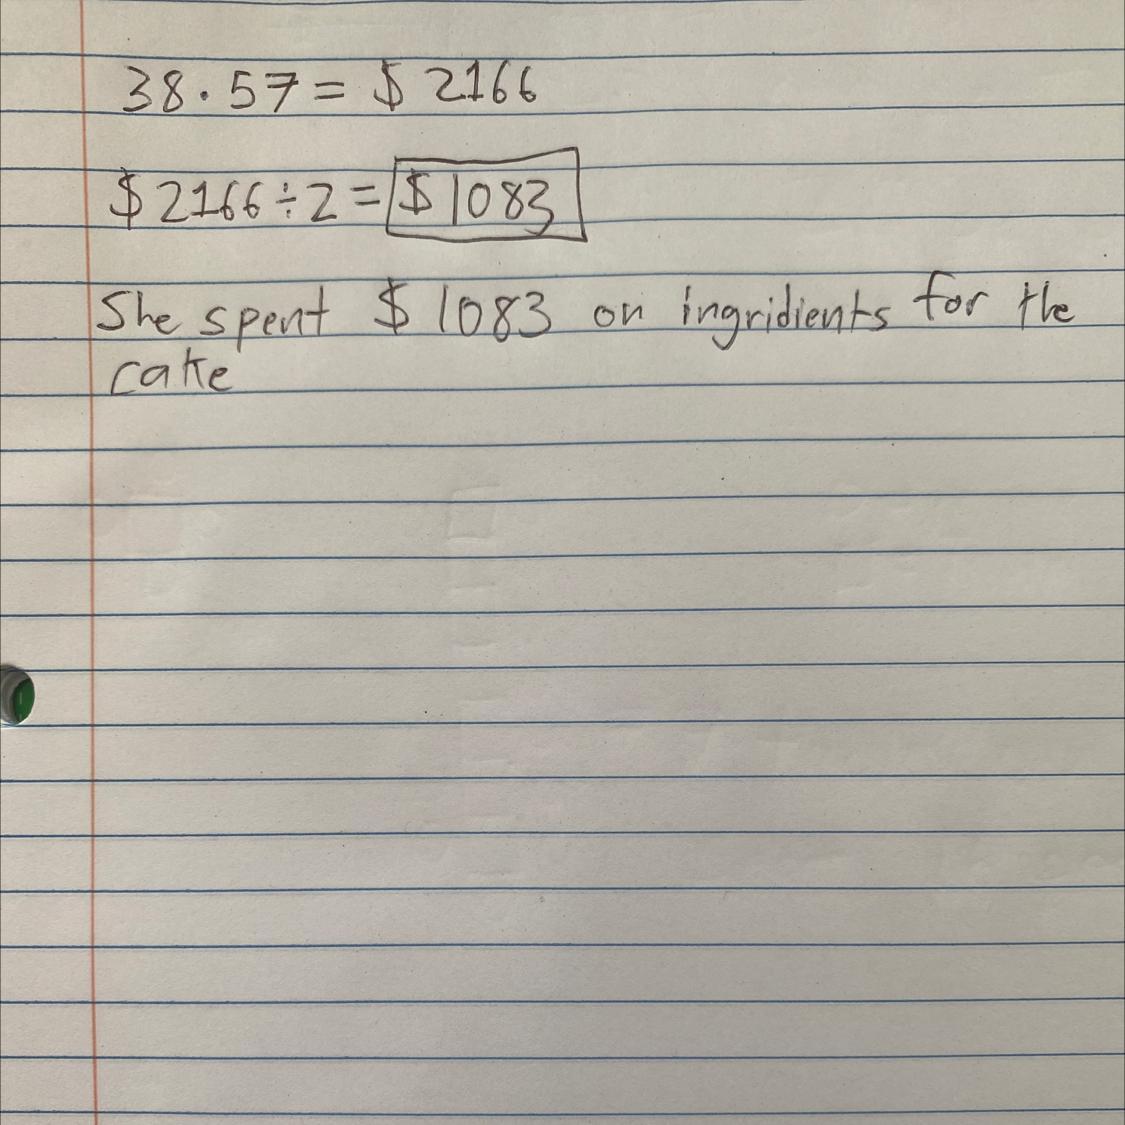 38·57 = $ 2166
$ 2166 ÷ 2 = $ 1083
She spent $ 1083 on ingridients for the
cake